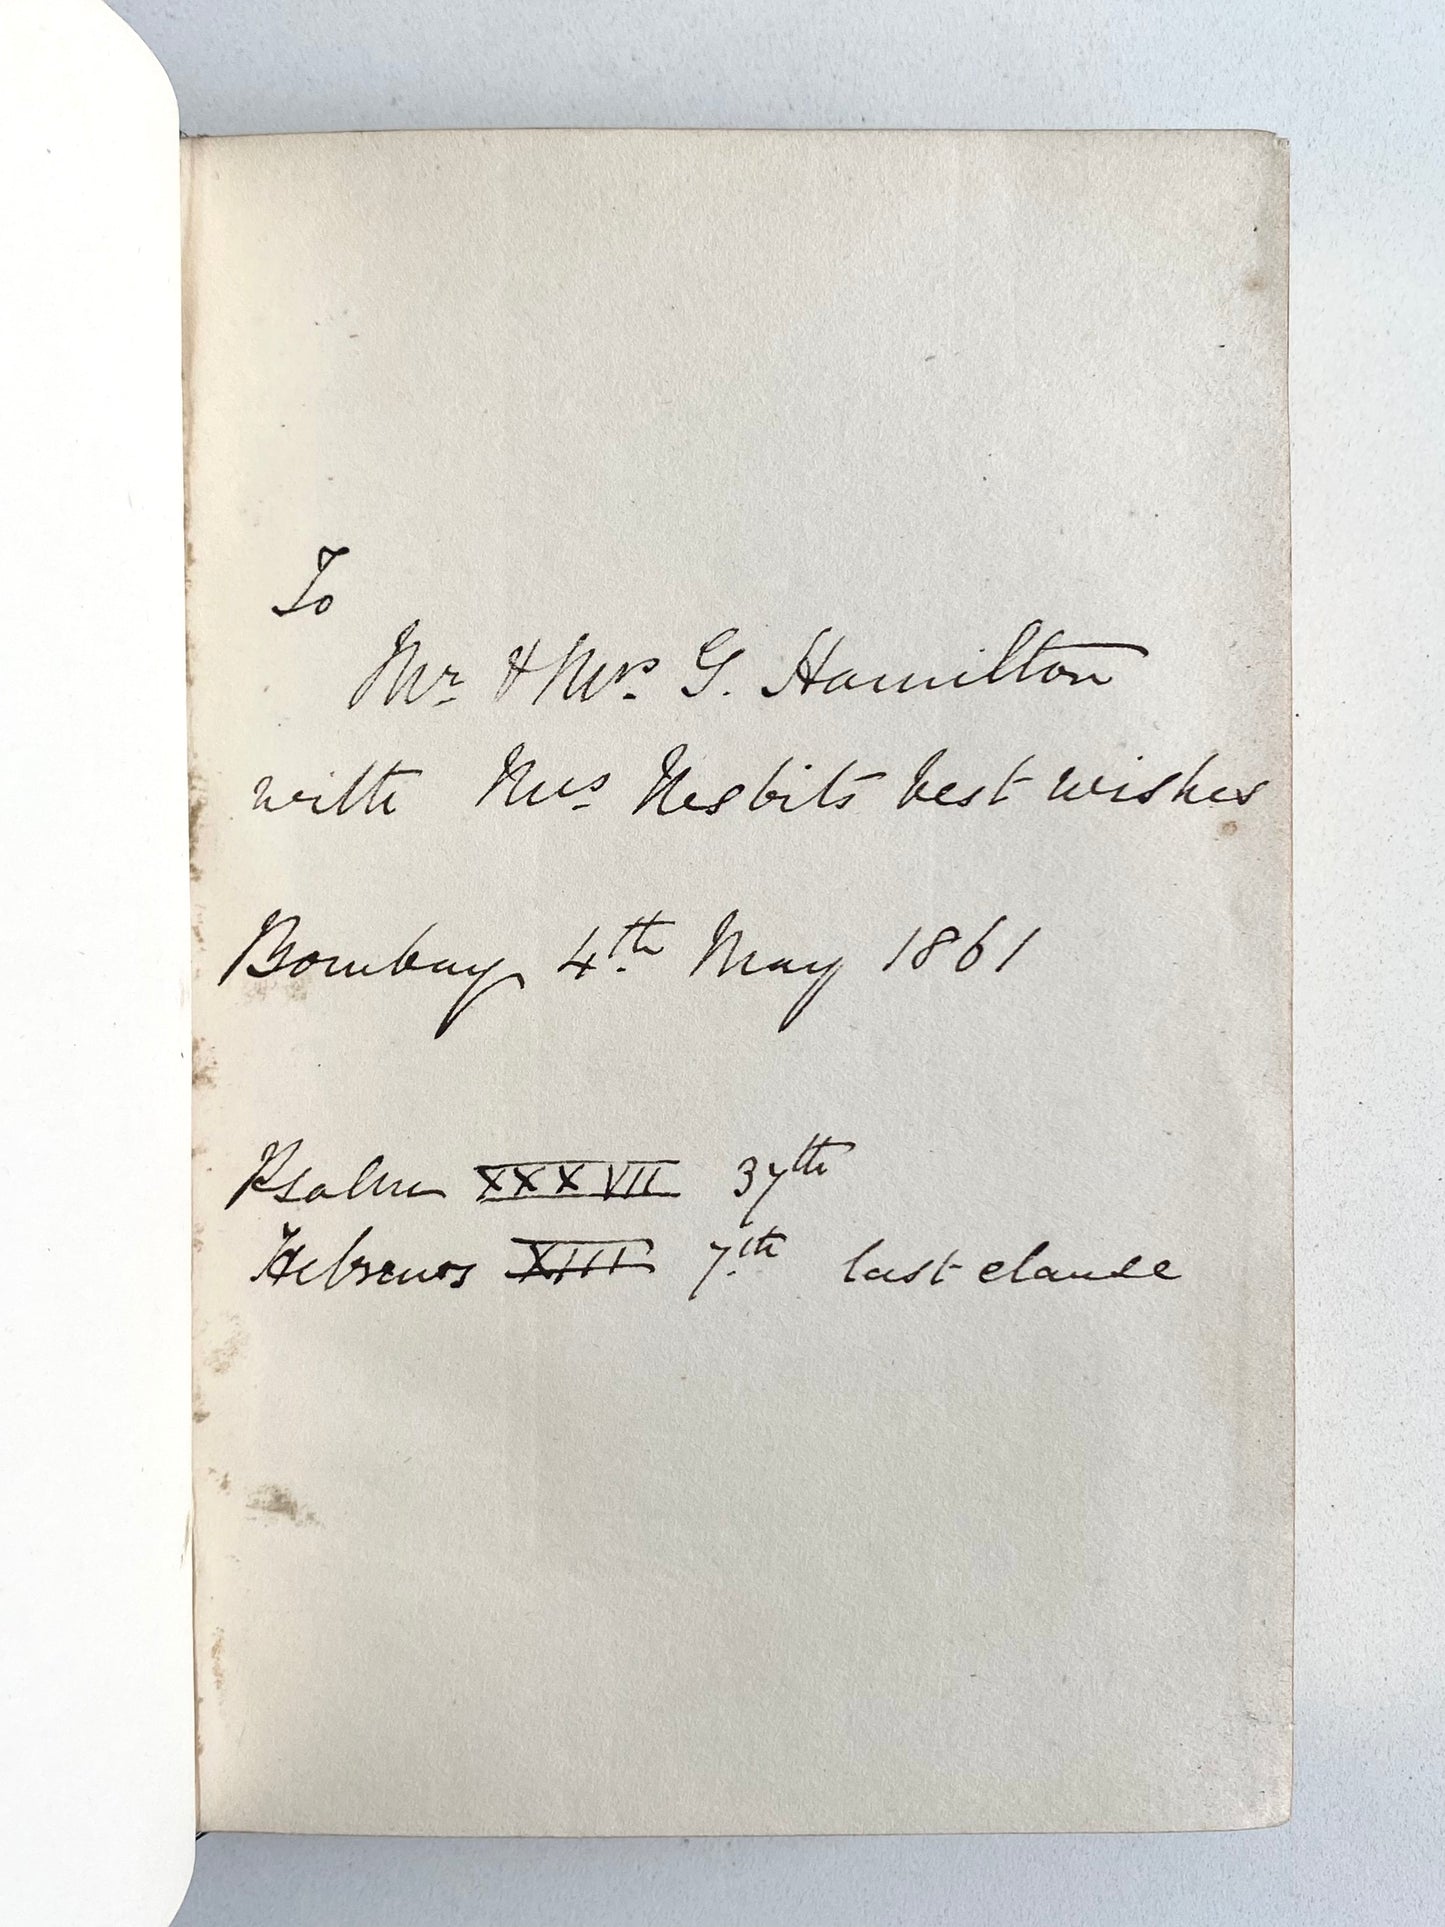 To
Mr. & Mrs. G. Hamilton
with Mrs. Nesbits best wishes
Bombay 4th May 1861
Psalm XXXVII 37th
Hebrews XIII 7th last clause